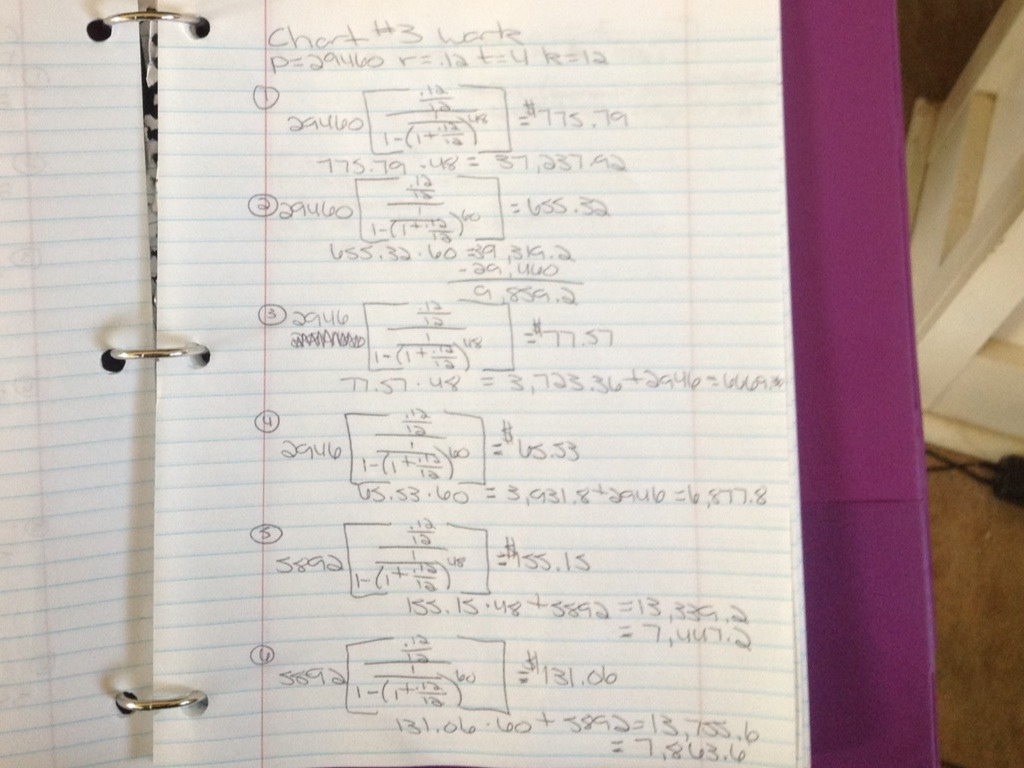 Chart #3 work
P=29460 r=.12 t=4 k=12
① 29460 [ (.12/12) / (1-(1/(1+.12/12))^48) ] = $775.79
775.79 · 48 = 37,237.92
② 29460 [ (.12/12) / (1-(1/(1+.12/12))^60) ] = 655.32
655.32 · 60 = 39,319.2
- 29,460
9,859.2
③ 2946 [ (.12/12) / (1-(1/(1+.12/12))^48) ] = $77.57
77.57 · 48 = 3,723.36 + 2946 = 6669.36
④ 2946 [ (.12/12) / (1-(1/(1+.12/12))^60) ] = $65.53
65.53 · 60 = 3,931.8 + 2946 = 6,877.8
⑤ 5892 [ (.12/12) / (1-(1/(1+.12/12))^48) ] = $155.15
155.15 · 48 + 5892 = 13,339.2
= 7,447.2
⑥ 5892 [ (.12/12) / (1-(1/(1+.12/12))^60) ] = $131.06
131.06 · 60 + 5892 = 13,755.6
= 7,863.6